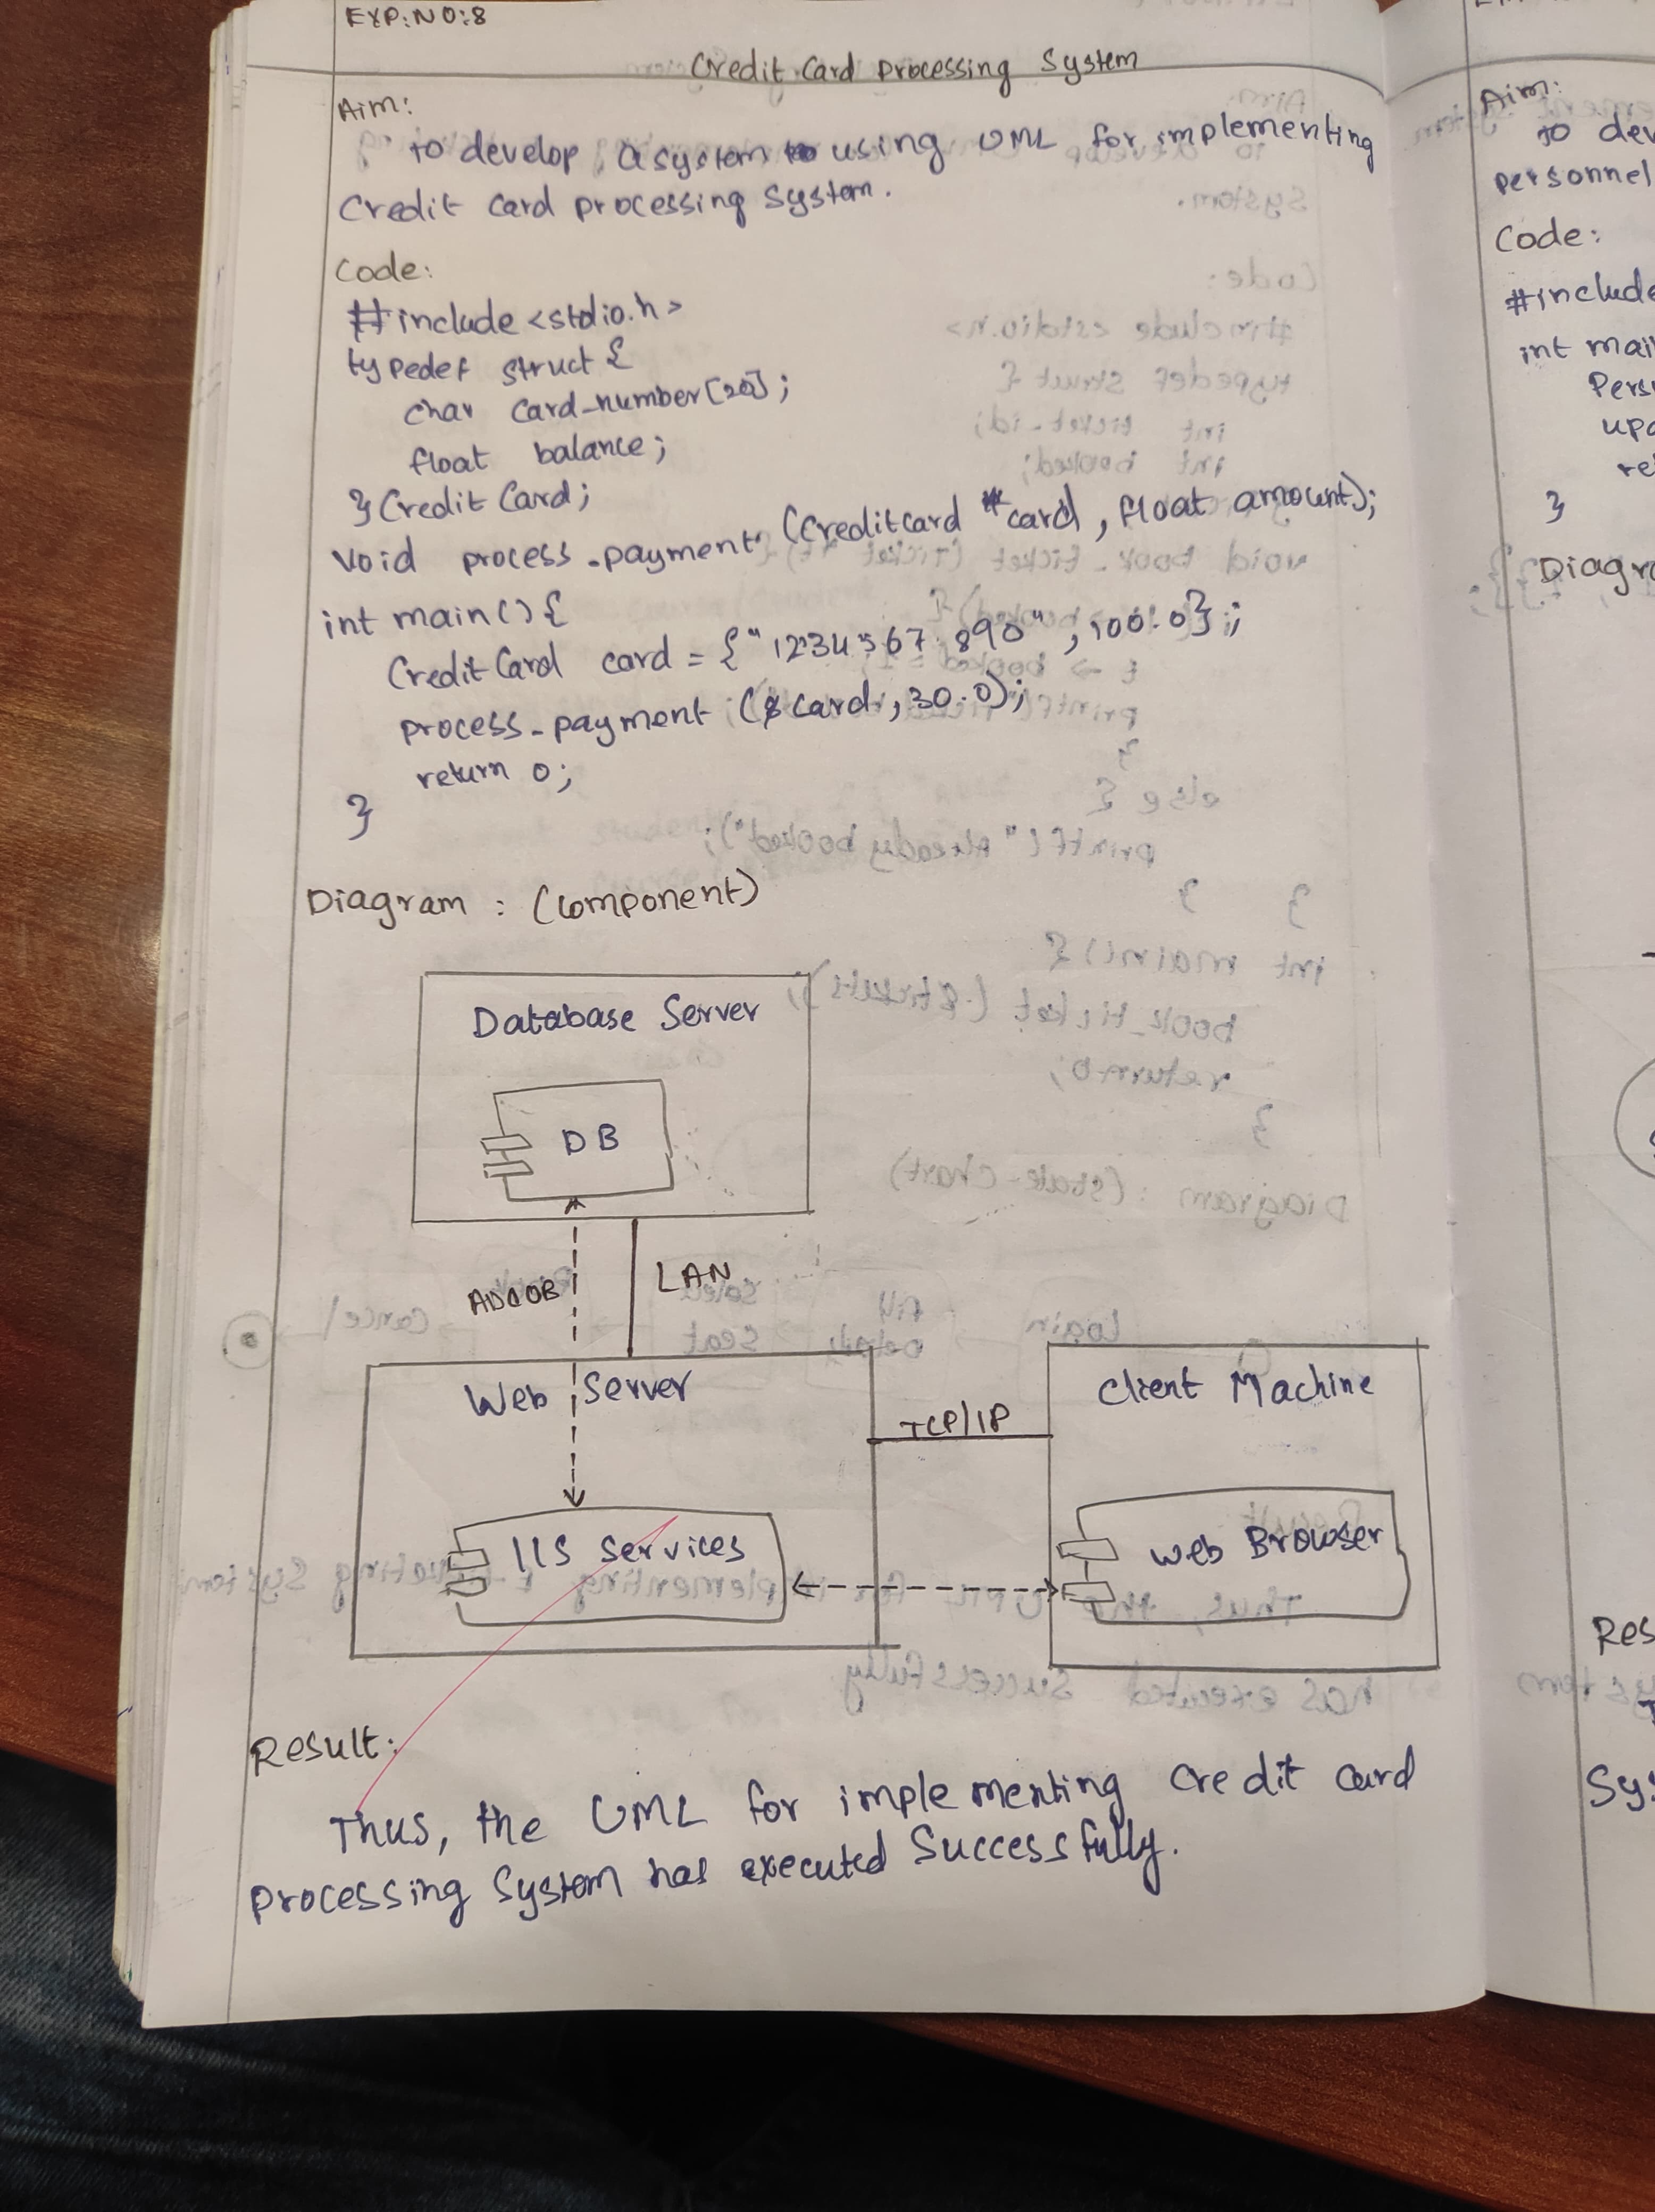 EXP:NO:8
Credit Card Processing System
Aim:
To develop a system using UML for implementing
Credit Card processing system.
Code:
#include <stdio.h>
typedef struct {
char card_number[20];
float balance;
} Credit Card;
void process_payment (Creditcard *card, float amount);
int main() {
Credit Card card = {"1234567890", 100.0};
process_payment (&card, 30.0);
return 0;
}
Diagram : (Component)
Database Server
DB
ADCOB
LAN
Web Server
TCP/IP
Client Machine
IIS Services
Web Browser
Result:
Thus, the UML for implementing credit card
processing system has executed Successfully.
Aim:
To dev
personnel
Code:
#include
int mai
Pers
upd
re
}
Diagra
Res
Sys